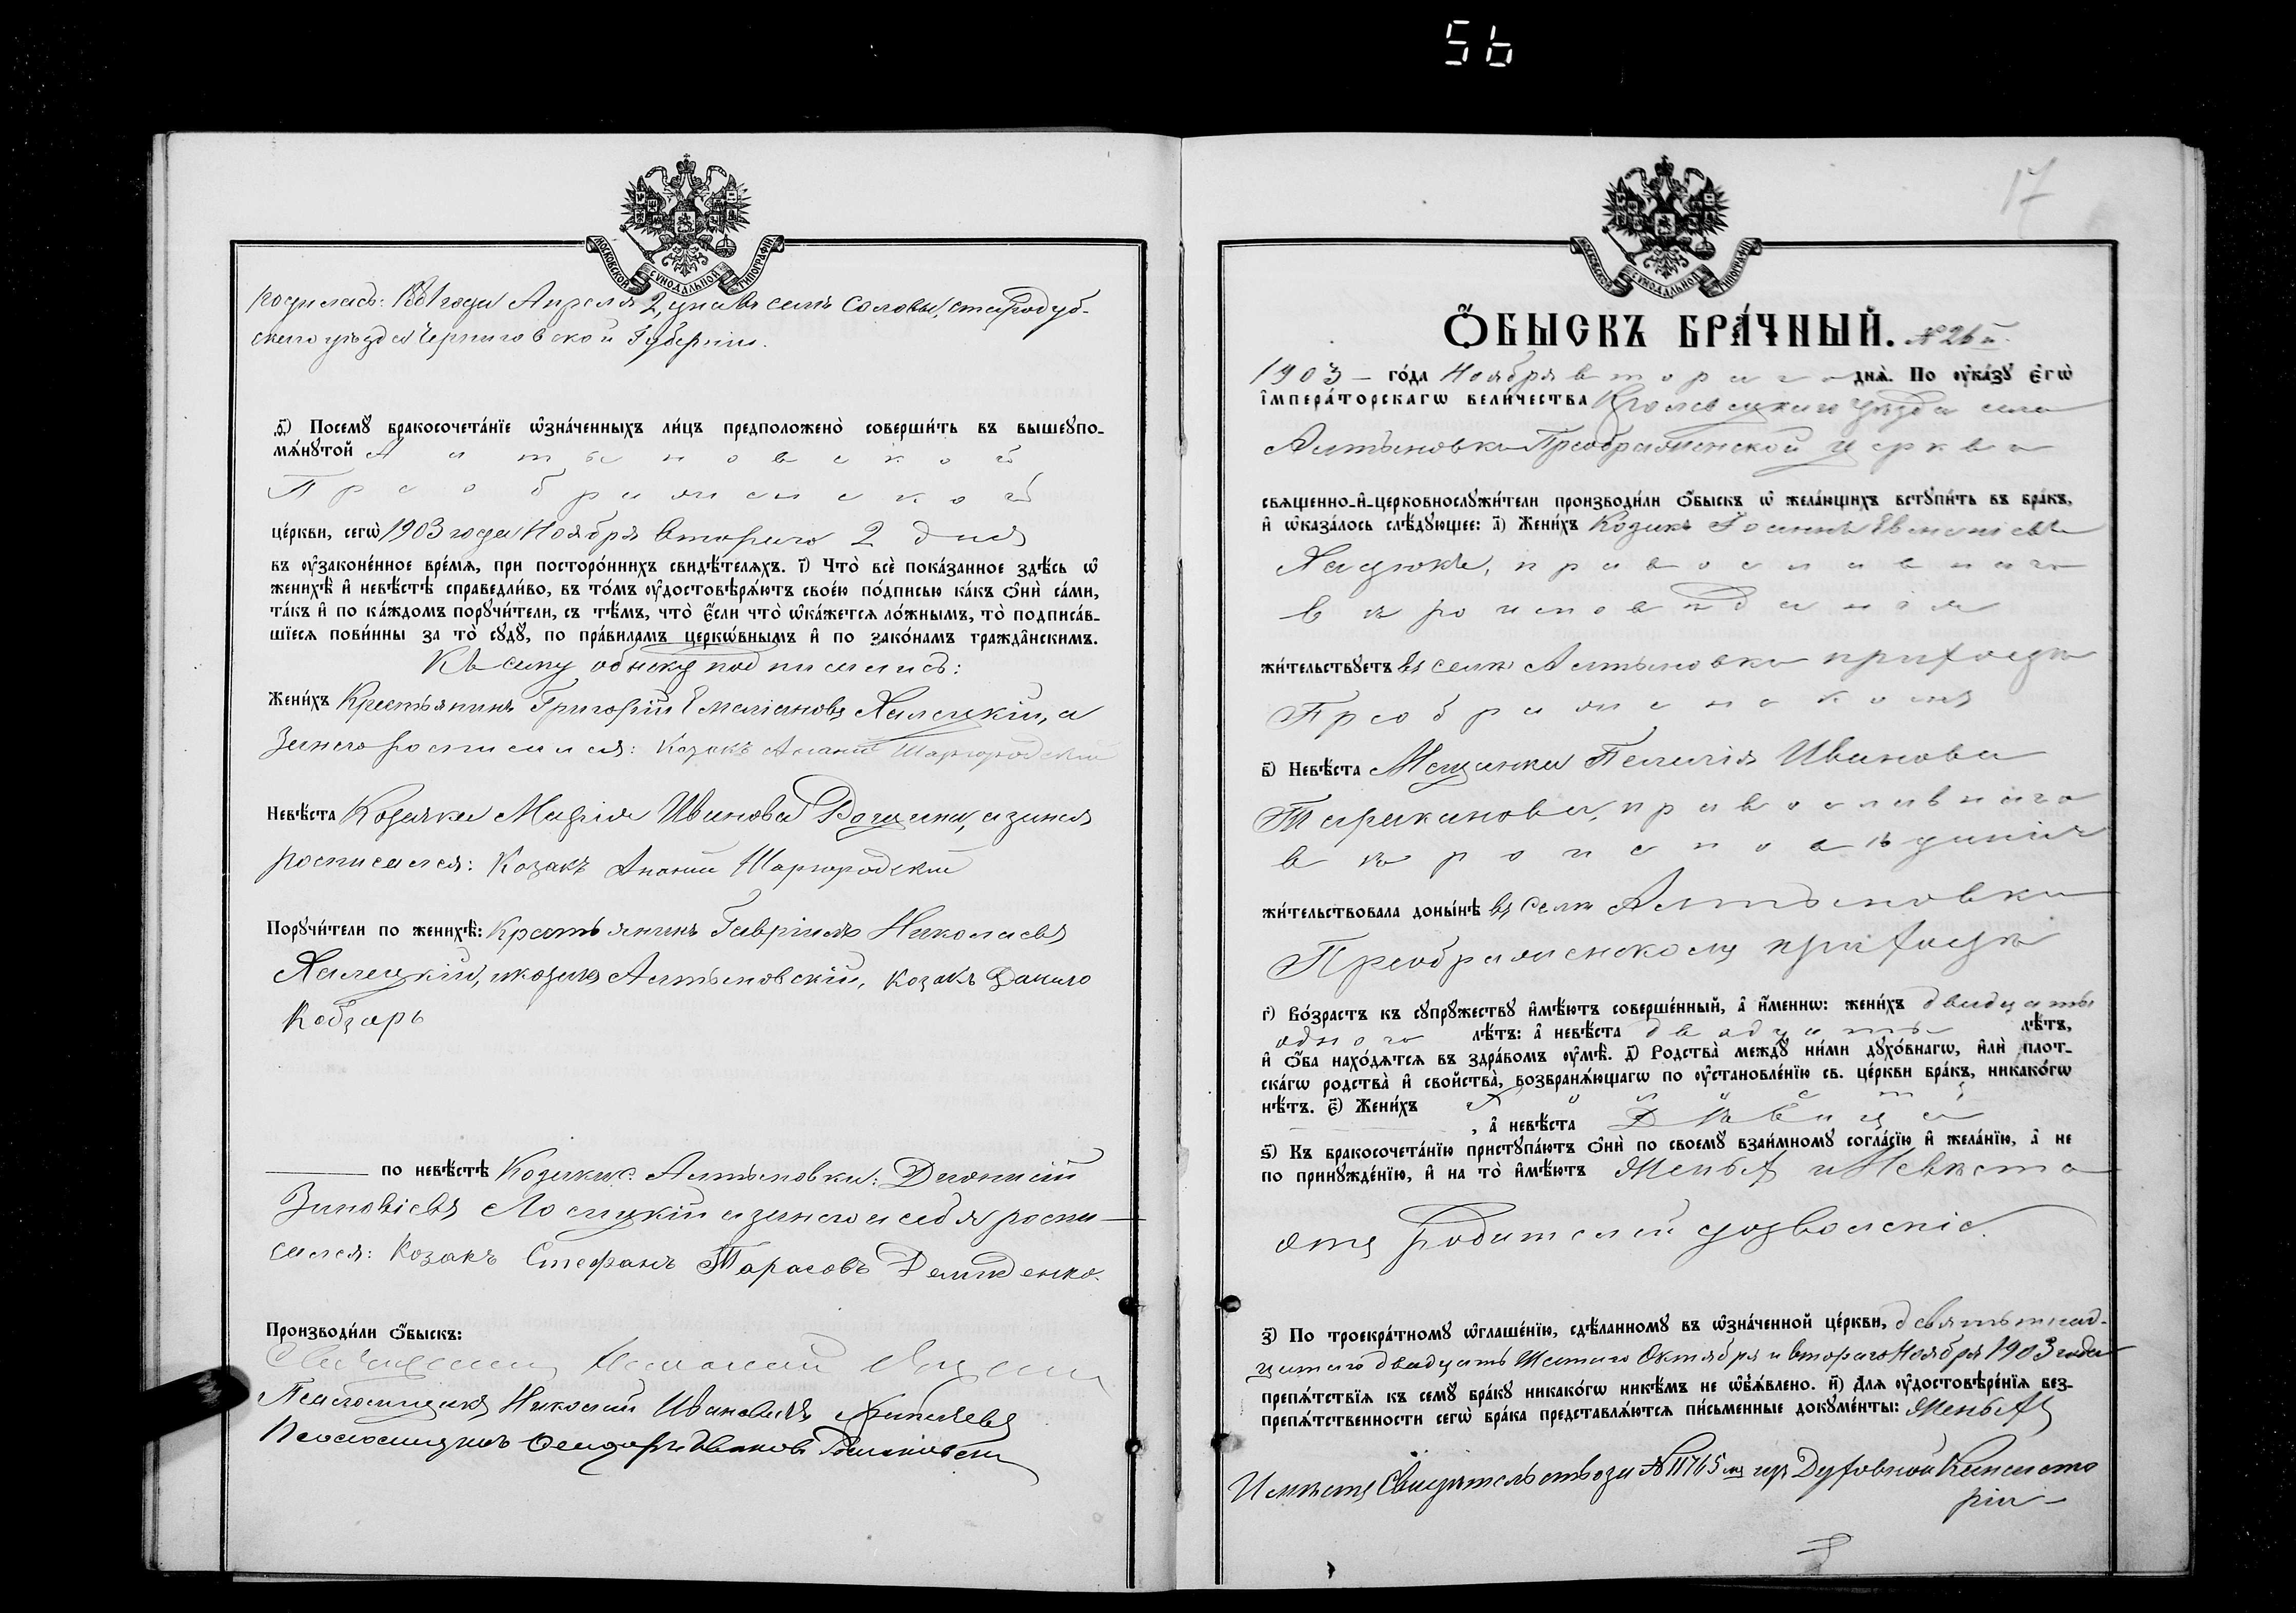 56
МОСКОВСКОЙ СѴНОДАЛЬНОЙ ТИПОГРАФІИ
родилась: года Апреля 2, дня въ селѣ Соловы, стародуб-
скаго уѣзда Черниговской Губерніи.
д҃і) Посемꙋ бракосочета́нїе ѡзна́ченныхъ ли́цъ предположено̀ соверши́ть въ вышеꙋпо-
мѧ́нꙋтой Алтыновской
Преображенской
це́ркви, сегѡ̀ 1903 года Ноября втораго 2 дня
въ ᲂу҆законе́нное вре́мѧ, при посторо́ннихъ свидѣ́телѧхъ. і҃) Что̀ всѐ пока́занное здѣ́сь ѡ҆
женихѣ̀ и҆ невѣ́стѣ справедли́во, въ то́мъ ᲂу҆достовѣрѧ́ютъ свое́ю по́дписью ка́къ ѻ҆нѝ са́ми,
та́къ и҆ по ка́ждомъ порꙋчи́тели, съ тѣ́мъ, что̀ є҆́сли что̀ ѡ҆ка́жетсѧ ло́жнымъ, то̀ подписа́в-
шїесѧ пови́нны за то̀ сꙋдꙋ̀, по пра́виламъ церкѡ́внымъ и҆ по зако́намъ гражда̂нскимъ.
Къ сему обыску подписались:
Жени́хъ Крестьянинъ Григорій Емеліановъ Халецкій, а
за него росписался: Козакъ Ананій Шаргородскій
Невѣ́ста Козачка Марія Иванова а за нея
росписался: Козакъ Ананій Шаргородскій
Порꙋчи́тели по женихѣ̀: Крестьянинъ Гавріилъ Николаевъ
Халецкій, козакъ Алтыновскій, Козакъ Данило
Кобзарь
по невѣ́стѣ Козаки с. Алтыновки: Діонисій
Зиновіевъ Лосицкій а за него и себя роспи-
сался: Козакъ Стефанъ Тарасовъ Демиденко.
Производи́ли ѻ҆́быскъ:
Священникъ
Псаломщикъ Николай Ивановичъ
Псаломщикъ
17
МОСКОВСКОЙ СѴНОДАЛЬНОЙ ТИПОГРАФІИ
Ѻ҆́БЫСКЪ БРА́ЧНЫЙ. № 26й.
1903 – го́да Ноября втораго днѧ̀. По ᲂу҆ка́зꙋ є҆гѡ̀
і҆мпера́торскагѡ вели́чества Кролевецкаго уѣзда села
Алтыновки Преображенской церкви
свѧщенно-и҆-церковнослꙋжи́тели производи́ли ѻ҆́быскъ ѡ҆ жела́ющихъ встꙋпи́ть въ бра́къ,
и҆ ѡ҆каза́лось слѣ́дꙋющее: а҃) Жени́хъ Козакъ Іоаннъ
православнаго
вѣроисповѣданія
жи́тельствꙋетъ въ селѣ Алтыновки приходѣ
Преображенскомъ
в҃) Невѣ́ста Мещанка Пелагія Иванова
Тараканова, православнаго
вѣроисповѣданія
жи́тельствовала доны́нѣ въ селѣ Алтыновки
Преображенскому приходѣ
г҃) Во́зрастъ къ сꙋпрꙋжествꙋ̀ и҆мѣ́ютъ соверше́нный, а҆̀ и҆́менно: жени́хъ двадцать
одного лѣ́тъ: а҆̀ невѣ́ста двадцать лѣ́тъ,
и҆ ѻ҆́ба нахо́дѧтсѧ въ здра́вомъ ᲂу҆мѣ̀. д҃) Родства̀ междꙋ̀ ни́ми дꙋхо́внагѡ, и҆лѝ плот-
ска́гѡ родства̀ и҆ сво́йства̀, возбранѧ́ющагѡ по ᲂу҆становле́нїю св. це́ркви бра́къ, никако́гѡ
нѣ́тъ. є҃) Жени́хъ Холостъ
, а҆̀ невѣ́ста Дѣвица
ѕ҃) Къ бракосочета́нїю пристꙋпа́ютъ ѻ҆нѝ по своемꙋ̀ взаи́мномꙋ согла́сїю и҆ жела́нїю, а҆̀ не
по принꙋжде́нїю, и҆ на то̀ и҆мѣ́ютъ Женыхъ и Невѣста
отъ родителей дозволеніе.
з҃) По троекра́тномꙋ ѡ҆глаше́нїю, сдѣ́ланномꙋ въ ѡ҆зна́ченной це́ркви, девятьнад-
цатаго двадцать шестаго Октября и втораго Ноября 1903 года
препѧ́тствїѧ къ семꙋ̀ бра́кꙋ никако́гѡ никѣ́мъ не ѡ҆б̾ѧ́влено. и҃) Длѧ̀ ᲂу҆достовѣре́нїѧ без-
препѧ́тственности сегѡ̀ бра́ка представлѧ́ютсѧ пи́сьменные докꙋме́нты: Женыхъ
Имѣетъ Свидѣтельство за № 11765 изъ Духовной Консисто
ріи